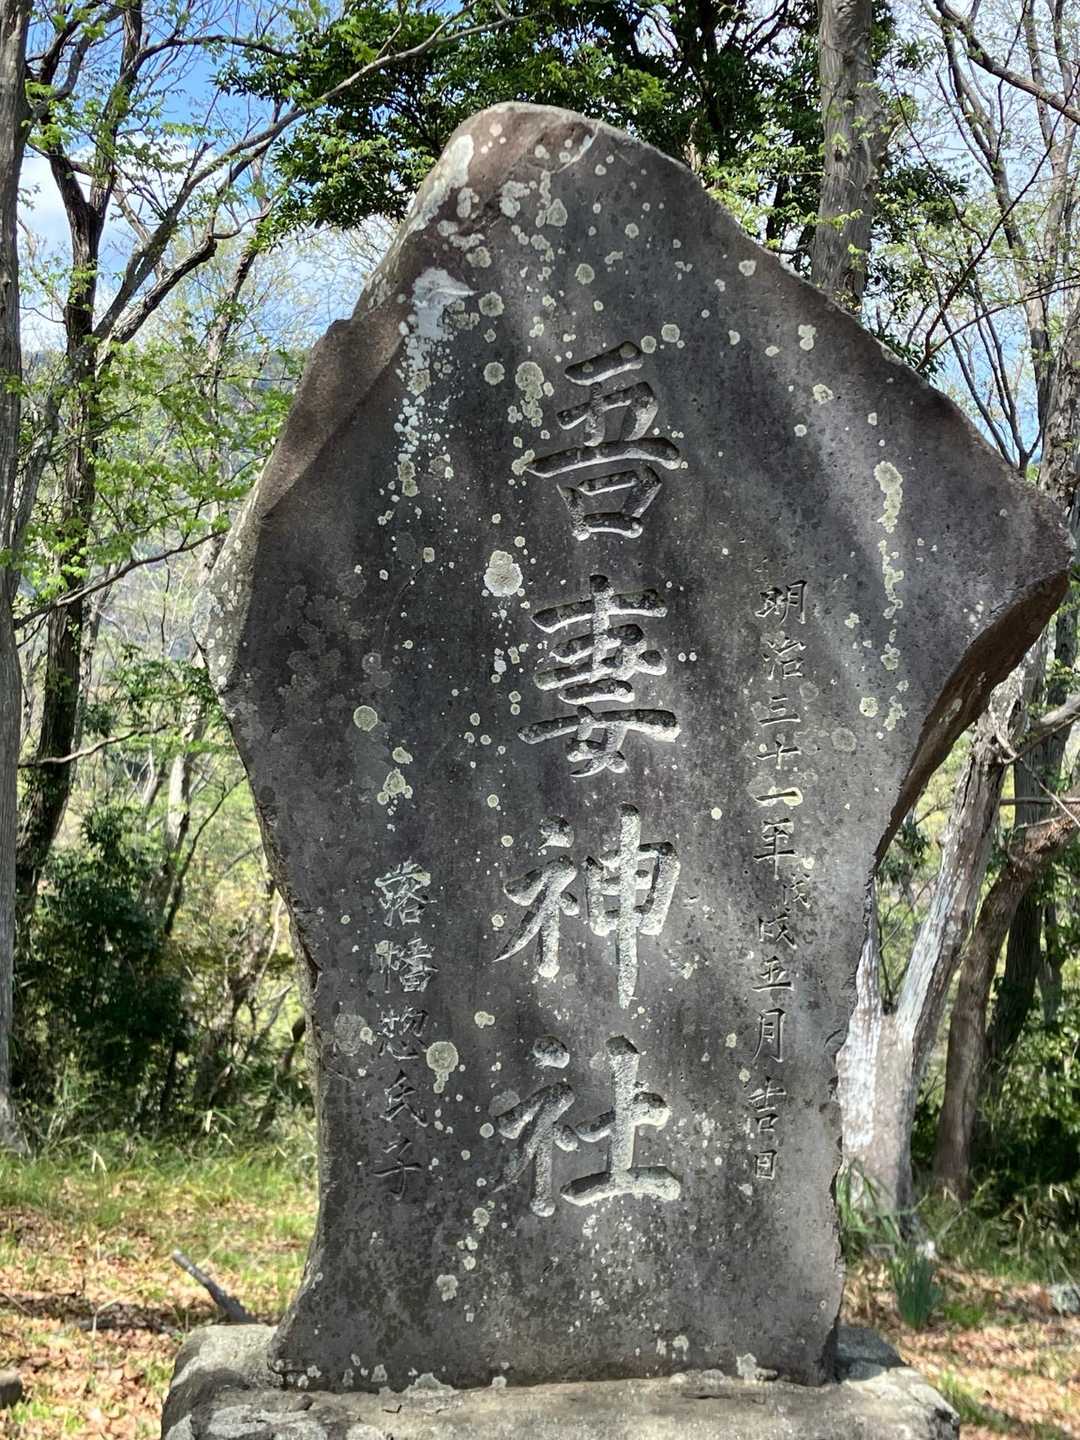 明治三十一年戊戌五月吉日
吾妻神社
落幡惣氏子